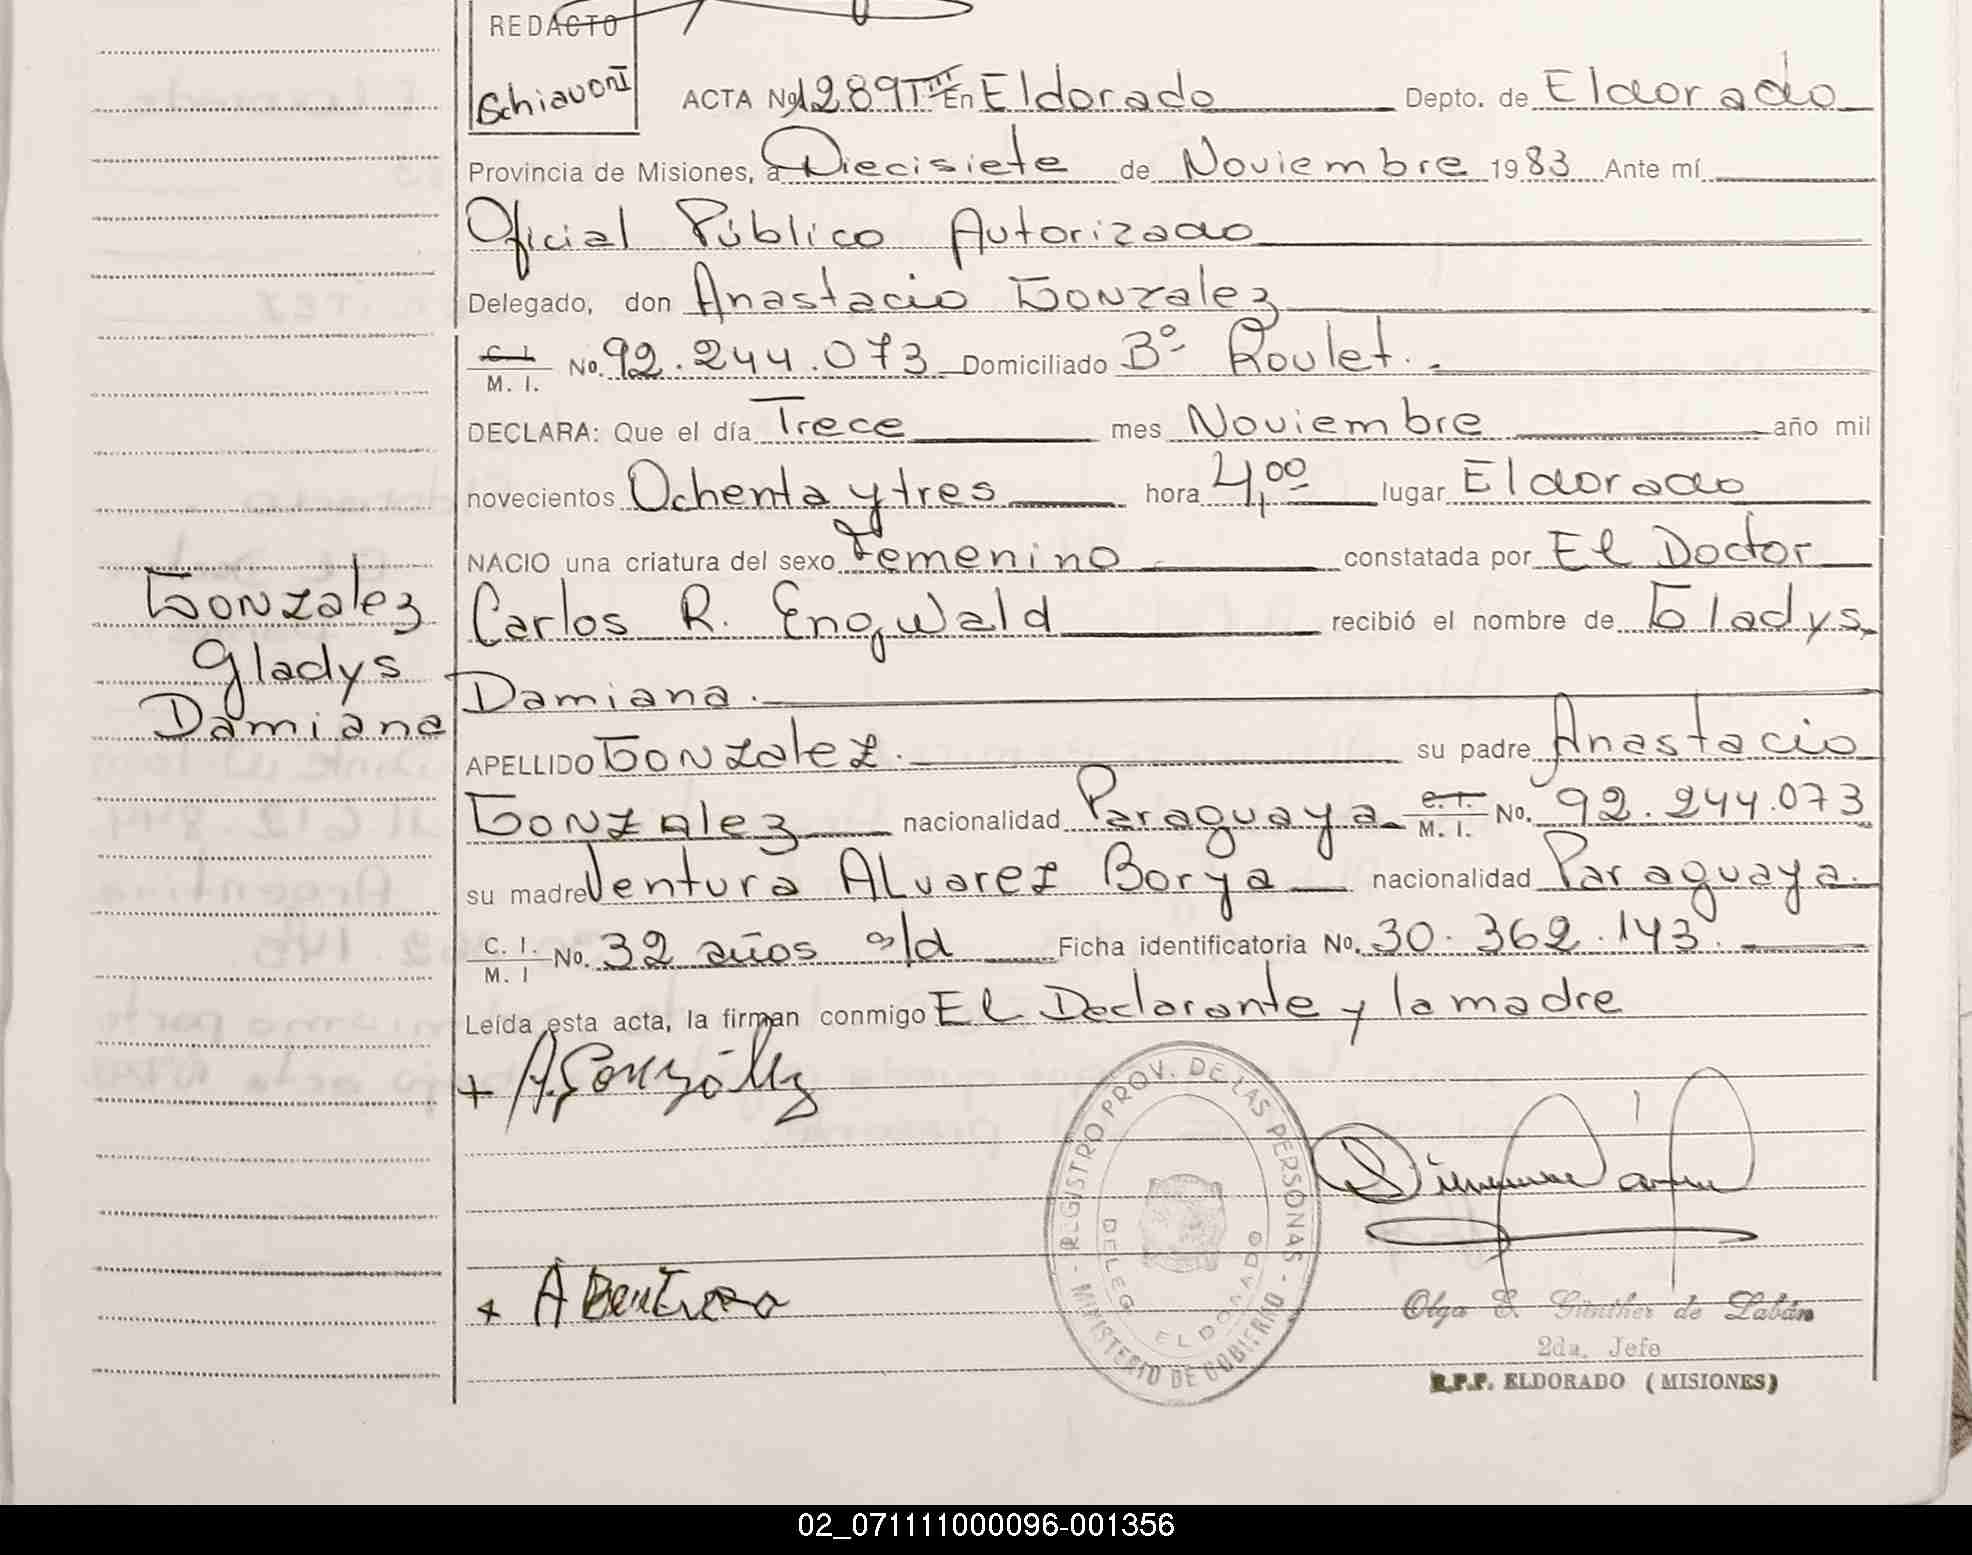 REDACTO
Schiavoni
ACTA No 1289 TºIII En Eldorado Depto. de Eldorado
Provincia de Misiones, a Diecisiete de Noviembre 1983 Ante mí
Oficial Público Autorizado
Delegado, don Anastacio Gonzalez
C. I. M. I. No. 92.244.073 Domiciliado Bº Roulet.
DECLARA: Que el día Trece mes Noviembre año mil
novecientos Ochenta y tres hora 4,00 lugar Eldorado
NACIO una criatura del sexo Femenino constatada por El Doctor
Carlos R. Engwald recibió el nombre de Gladys
Damiana.
APELLIDO Gonzalez. su padre Anastacio
Gonzalez nacionalidad Paraguaya C.I. M. I. No. 92.244.073
su madre Ventura Alvarez Borya nacionalidad Paraguaya.
C. I. M. I No. 32 años s/d Ficha identificatoria No. 30.362.143.
Leída esta acta, la firman conmigo El Declarante y la madre
Gonzalez
Gladys
Damiana
+ A. González
+ A Bentura
REGISTRO PROV. DE LAS PERSONAS - MINISTERIO DE GOBIERNO -
DELEG ELDORADO
Olga E. Günther de Labán
2da. Jefe
R.P.P. ELDORADO (MISIONES)
02_071111000096-001356